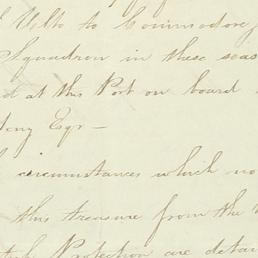 to Commodore
Squadron in these seas
at this Port on board
Esqr —
circumstances which no
this treasure from the
Protection are detai